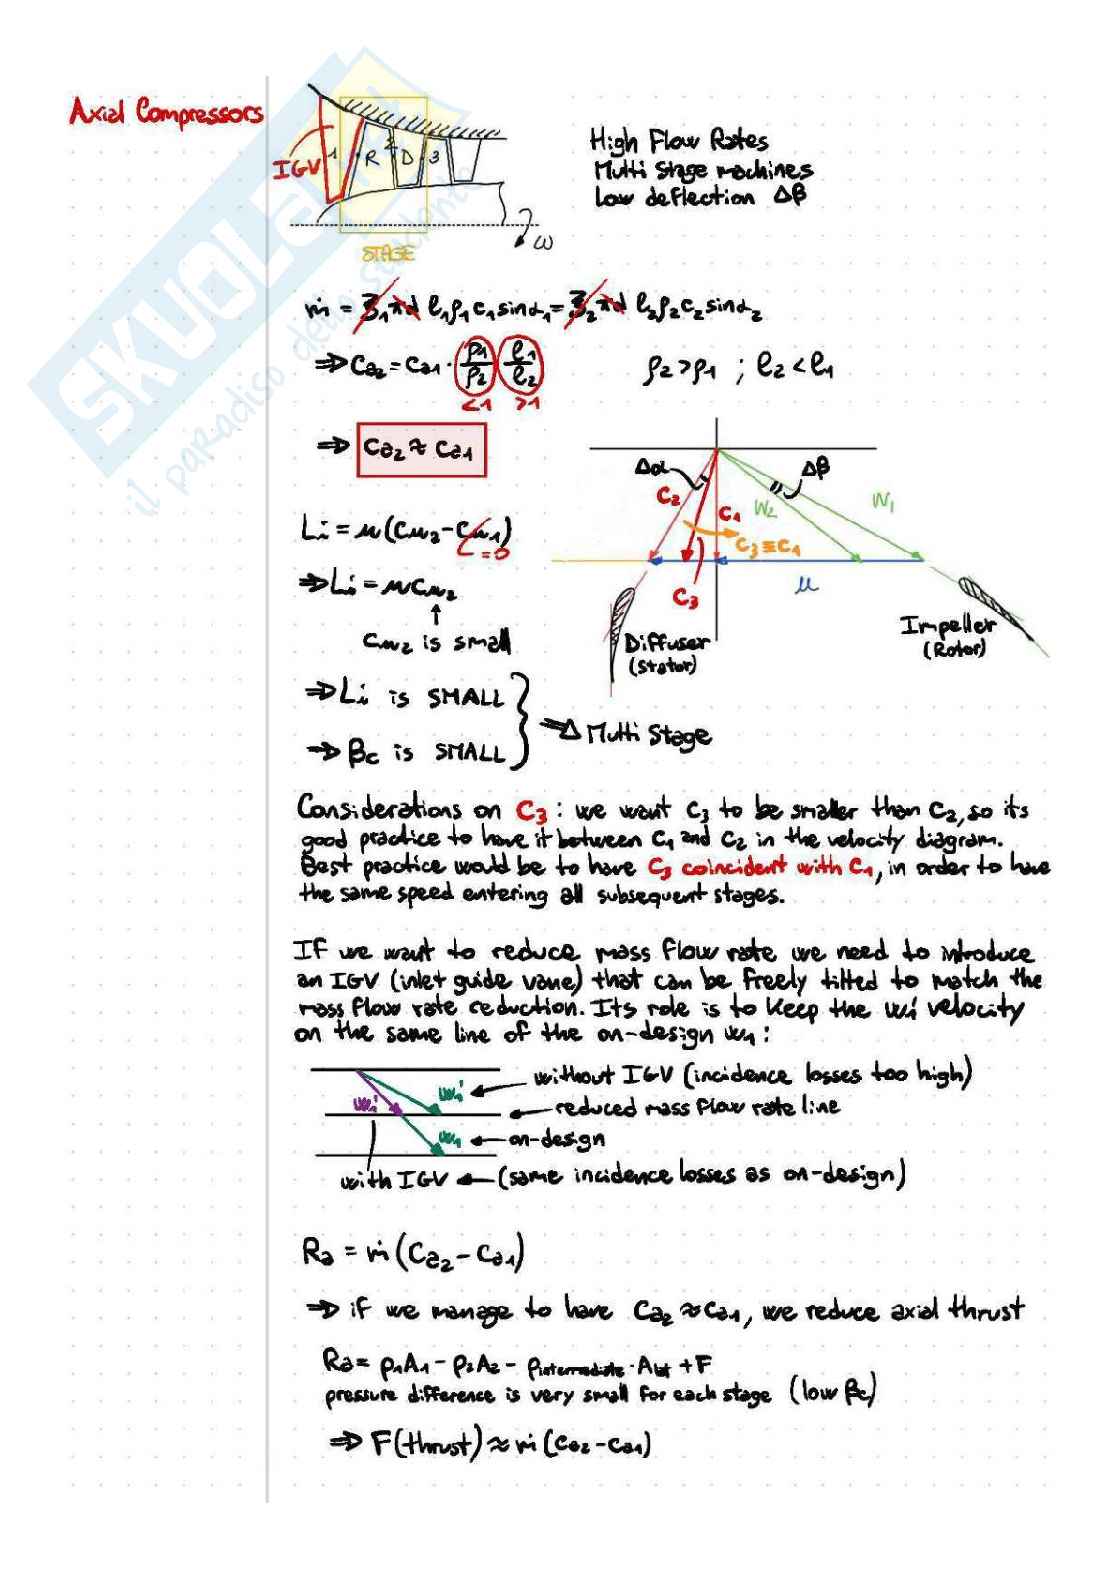 Axial Compressors
IGV
1
R
2
D
3
STAGE
ω
High Flow Rates
Multi Stage machines
Low deflection Δβ
SKUOLA.net
il paradiso dello studente
ṁ = ξ₁πd l₁ρ₁c₁sinα₁ = ξ₂πd l₂ρ₂c₂sinα₂
⇒ Ca₂ = Ca₁ · ρ₁/ρ₂ l₁/l₂
<1 >1
ρ₂>ρ₁ ; l₂<l₁
⇒ Ca₂ ≈ Ca₁
Δα
Δβ
C₂
C₁
W₂
W₁
C₃≡C₁
C₃
u
Diffuser
(Stator)
Impeller
(Rotor)
Li = u(Cu₂-Cu₁)
=0
⇒ Li = uCu₂
↑
Cu₂ is small
⇒ Li is SMALL
⇒ βc is SMALL
⇒ Multi Stage
Considerations on C₃: we want C₃ to be smaller than C₂, so its
good practice to have it between C₁ and C₂ in the velocity diagram.
Best practice would be to have C₃ coincident with C₁, in order to have
the same speed entering all subsequent stages.
If we want to reduce mass flow rate we need to introduce
an IGV (inlet guide vane) that can be freely tilted to match the
mass flow rate reduction. Its role is to keep the w₁' velocity
on the same line of the on-design w₁:
w₁' ← without IGV (incidence losses too high)
w₁'
← reduced mass flow rate line
w₁ ← on-design
with IGV ← (same incidence losses as on-design)
Ra = ṁ(Ca₂-Ca₁)
⇒ if we manage to have Ca₂≈Ca₁, we reduce axial thrust
Ra = p₁A₁ - p₂A₂ - pintermediate · Alat + F
pressure difference is very small for each stage (low βc)
⇒ F(thrust) ≈ ṁ(Ca₂-Ca₁)